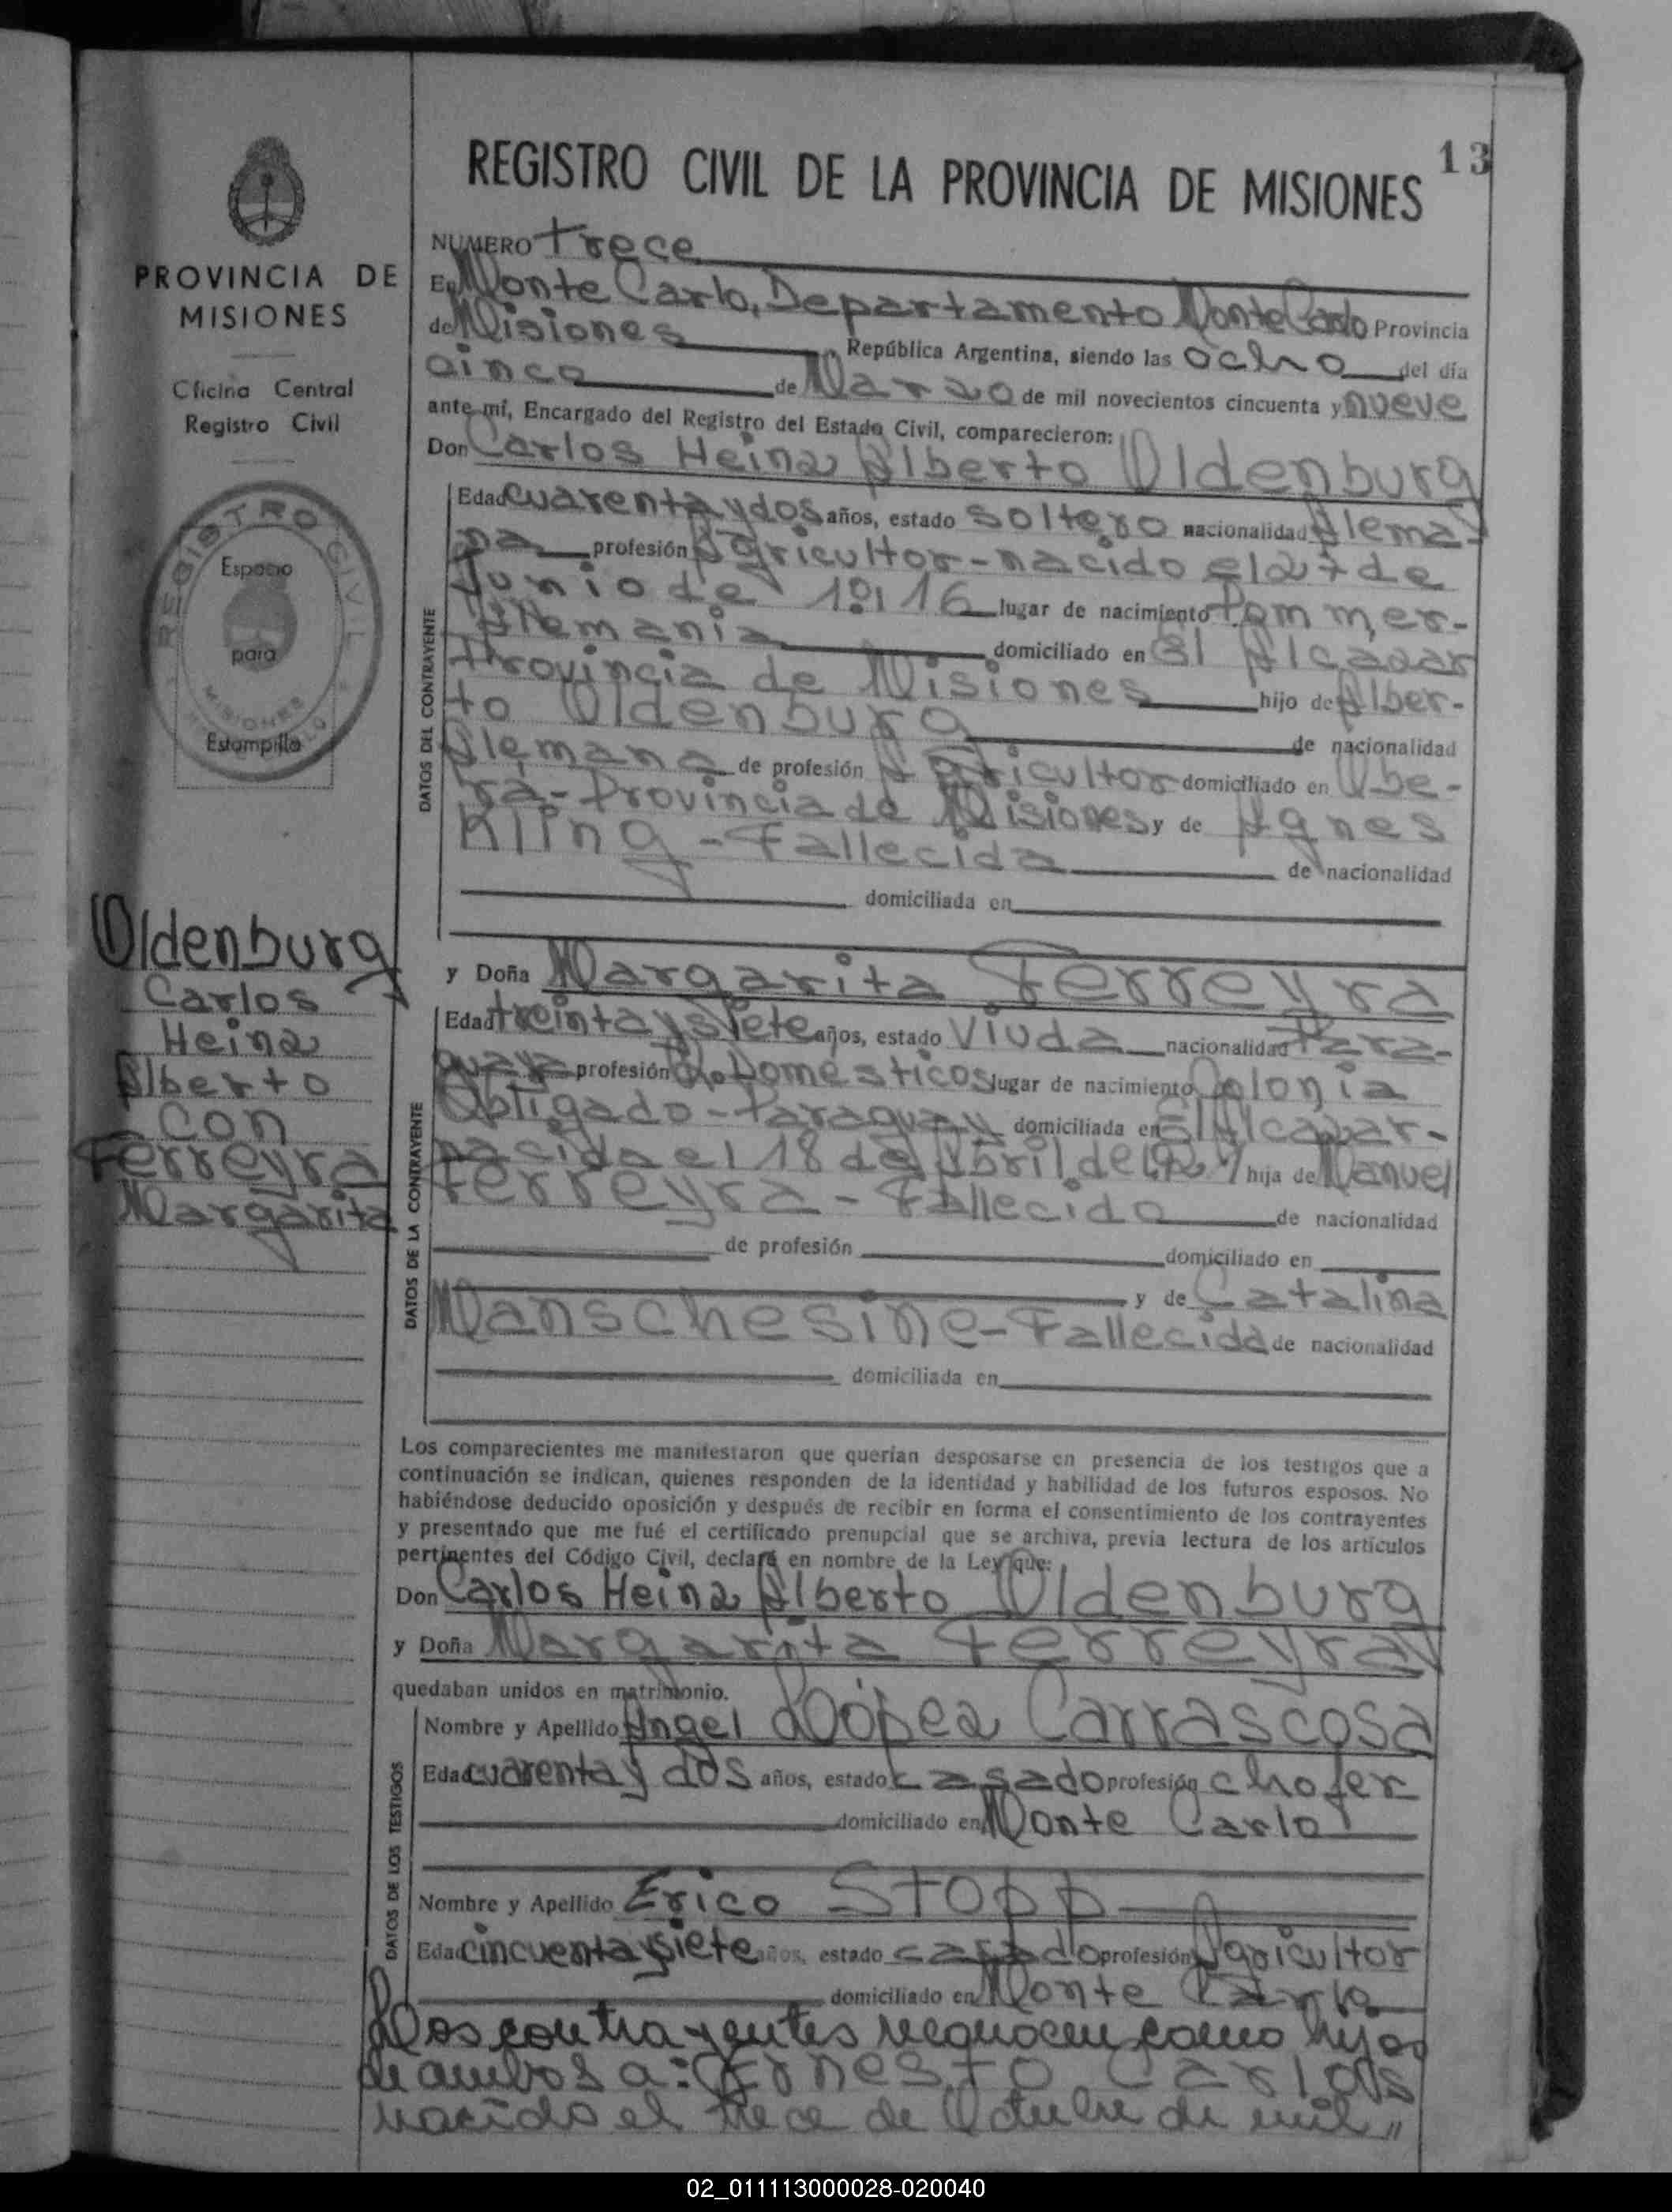 13
REGISTRO CIVIL DE LA PROVINCIA DE MISIONES
PROVINCIA DE
MISIONES
Oficina Central
Registro Civil
REGISTRO CIVIL
Espacio
para
Estampilla
MISIONES
Oldenburg
Carlos
Heinz
Alberto
con
Ferreyra
Margarita
NUMERO trece
En Monte Carlo, Departamento Monte Carlo Provincia
de Misiones República Argentina, siendo las ocho del día
cinco de Marzo de mil novecientos cincuenta y nueve
ante mí, Encargado del Registro del Estado Civil, comparecieron:
Don Carlos Heinz Alberto Oldenburg
DATOS DEL CONTRAYENTE
Edad cuarenta y dos años, estado soltero nacionalidad Alema-
na profesión Agricultor-nacido el 27 de
Junio de 1916 lugar de nacimiento Pommer-
Alemania domiciliado en El Alcazar
Provincia de Misiones hijo de Alber-
to Oldenburg de nacionalidad
Alemana de profesión Agricultor domiciliado en Obe-
rá-Provincia de Misiones y de Agnes
Kling-Fallecida de nacionalidad
domiciliada en
y Doña Margarita Ferreyra
DATOS DE LA CONTRAYENTE
Edad treinta y siete años, estado Viuda nacionalidad Para-
guaya profesión Q. Domésticos lugar de nacimiento Colonia
Obligado-Paraguay domiciliada en El Alcazar-
nacida el 18 de Abril de hija de Manuel
Ferreyra-Fallecido de nacionalidad
de profesión domiciliado en
y de Catalina
Manschesine-Fallecida de nacionalidad
domiciliada en
Los comparecientes me manifestaron que querían desposarse en presencia de los testigos que a
continuación se indican, quienes responden de la identidad y habilidad de los futuros esposos. No
habiéndose deducido oposición y después de recibir en forma el consentimiento de los contrayentes
y presentado que me fué el certificado prenupcial que se archiva, previa lectura de los artículos
pertinentes del Código Civil, declaré en nombre de la Ley que:
Don Carlos Heinz Alberto Oldenburg
y Doña Margarita Ferreyra
quedaban unidos en matrimonio.
DATOS DE LOS TESTIGOS
Nombre y Apellido Angel López Carrascosa
Edad cuarenta y dos años, estado casado profesión chofer
domiciliado en Monte Carlo
Nombre y Apellido Erico Stopp
Edad cincuenta y siete años, estado casado profesión Agricultor
domiciliado en Monte Carlo
Los contrayentes reconocen como hijos
de ambos a: Ernesto Carlos
nacido el trece de Octubre de mil,,
02_011113000028-020040